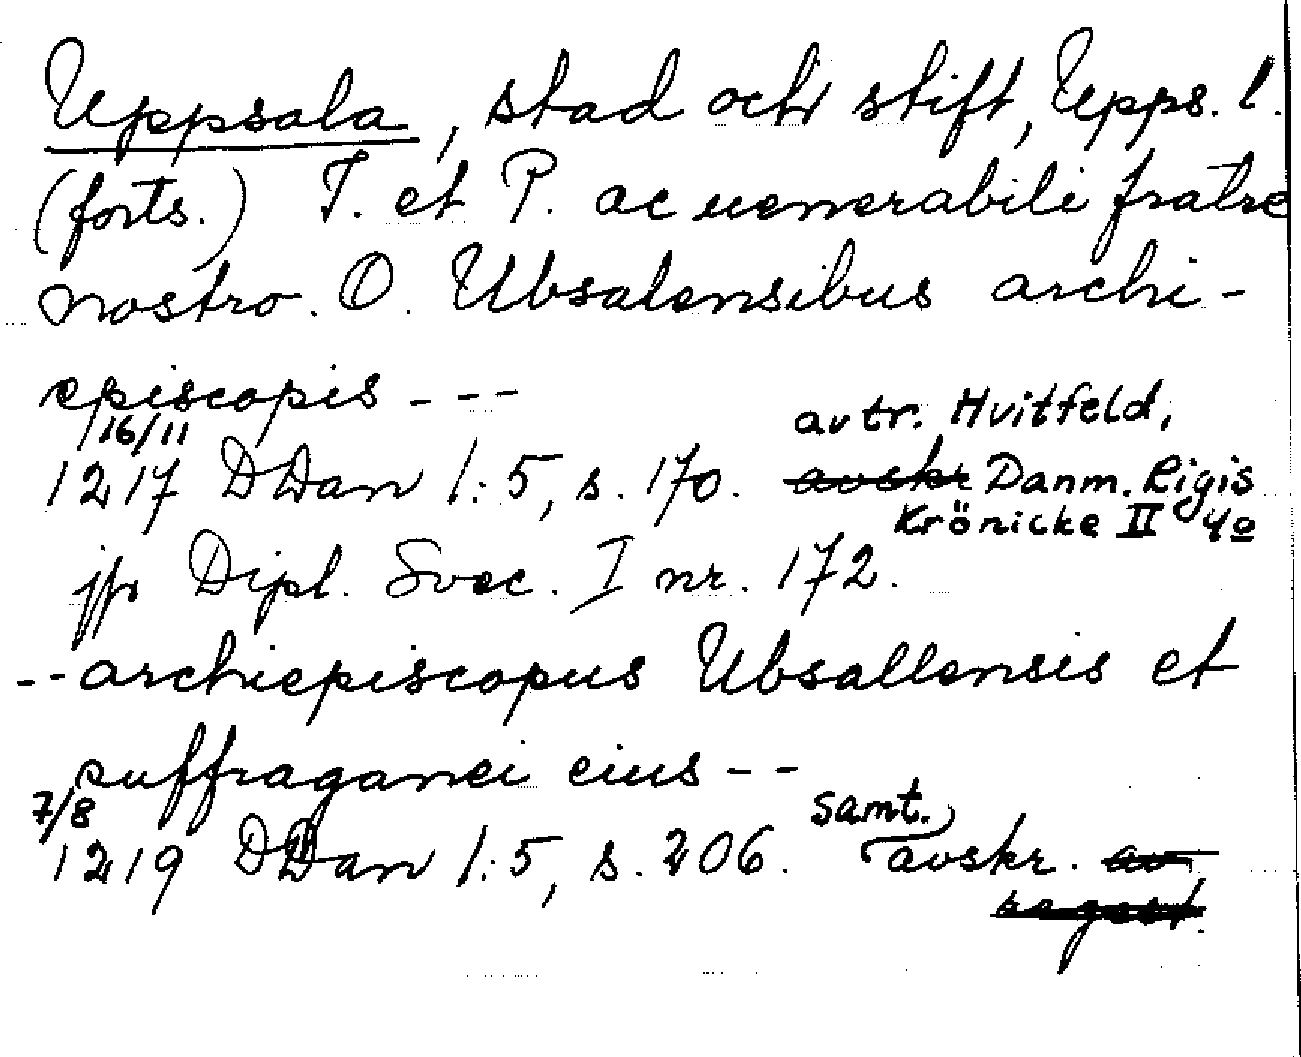 Uppsala, stad och stift, Upps. l.
(forts.) T. et P. ac uenerabili fratre
nostro. O. Ubsalensibus archi-
episcopis - - -
16/11
1217 DDan 1:5, s. 170. avtr. Hvitfeld,
avskr Danm. Rigis
Krönicke II 4o
jfr Dipl. Svec. I nr. 172.
-- archiepiscopus Ubsallensis et
suffraganei eius - -
7/8
1219 DDan 1:5, s. 206. samt.
avskr. av
regest.